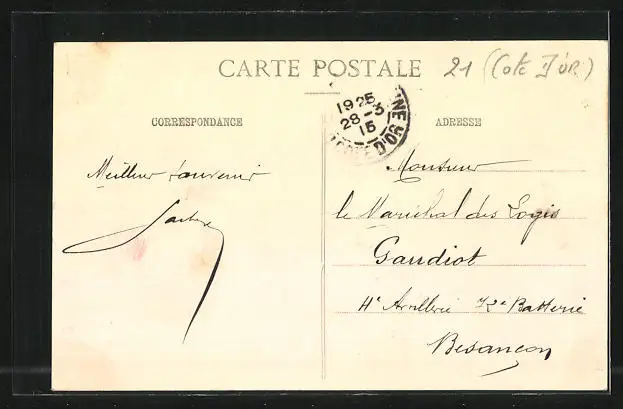 CARTE POSTALE
21 (Cote D'OR)
CORRESPONDANCE
ADRESSE
1925
28-3
15
NE
D'OR
Meilleur souvenir
Monsieur
le Maréchal des Logis
Gaudiot
4e Artillerie Batterie
Besançon